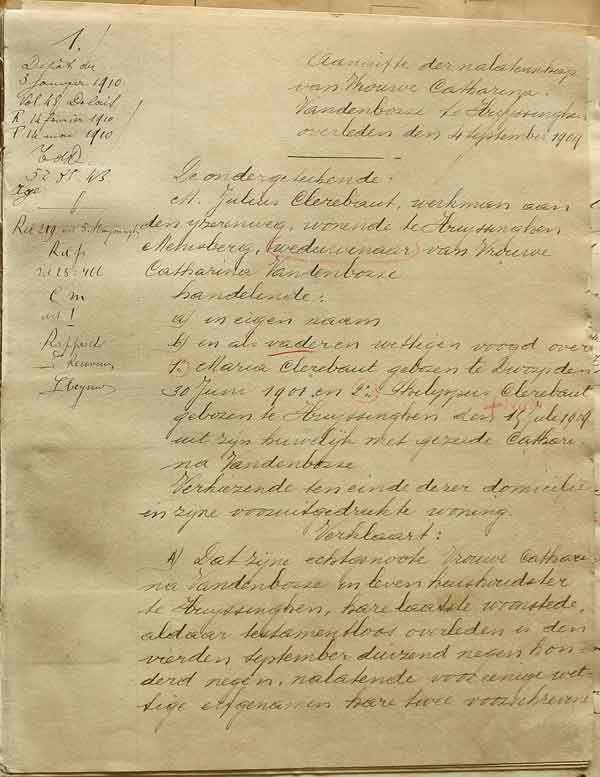 1.
Dépôt du
3 janvier 1910
Vol 45
R. 14 février 1910
P 14 mai 1910
52 85 43
Rapport
Aangifte der nalatenschap
van Vrouwe Catharina
Vandenbosse te Huyssinghen
overleden den 4 September 1909
De ondergeteekende:
M. Julius Clerebaut, werkman aan
den yzerenweg, wonende te Huyssinghen
Mehisberg, (weduwenaar) van Vrouwe
Catharina Vandenbosse
handelende:
a) in eigen naam
b) in als vader en wettigen voogd over
1.) Maria Clerebaut geboren te
30 Juni 1901 en 2.) Philippus Clerebaut
geboren te Huyssinghen den 15 Juli 1909
uit zijn huwelijk met gezeide Catha-
rina Vandenbosse
Verkiezende ten einde dezer domicilie
in zijne vooruitgedrukte woning.
Verklaart:
A) Dat zijne echtgenoote Vrouwe Catha-
rina Vandenbosse in leven huishoudster
te Huyssinghen, hare laatste woonstede,
aldaar testamentloos overleden is den
vierden September duizend negen hon-
derd negen, nalatende voor eenige wet-
tige erfgenamen hare twee voorschrevene